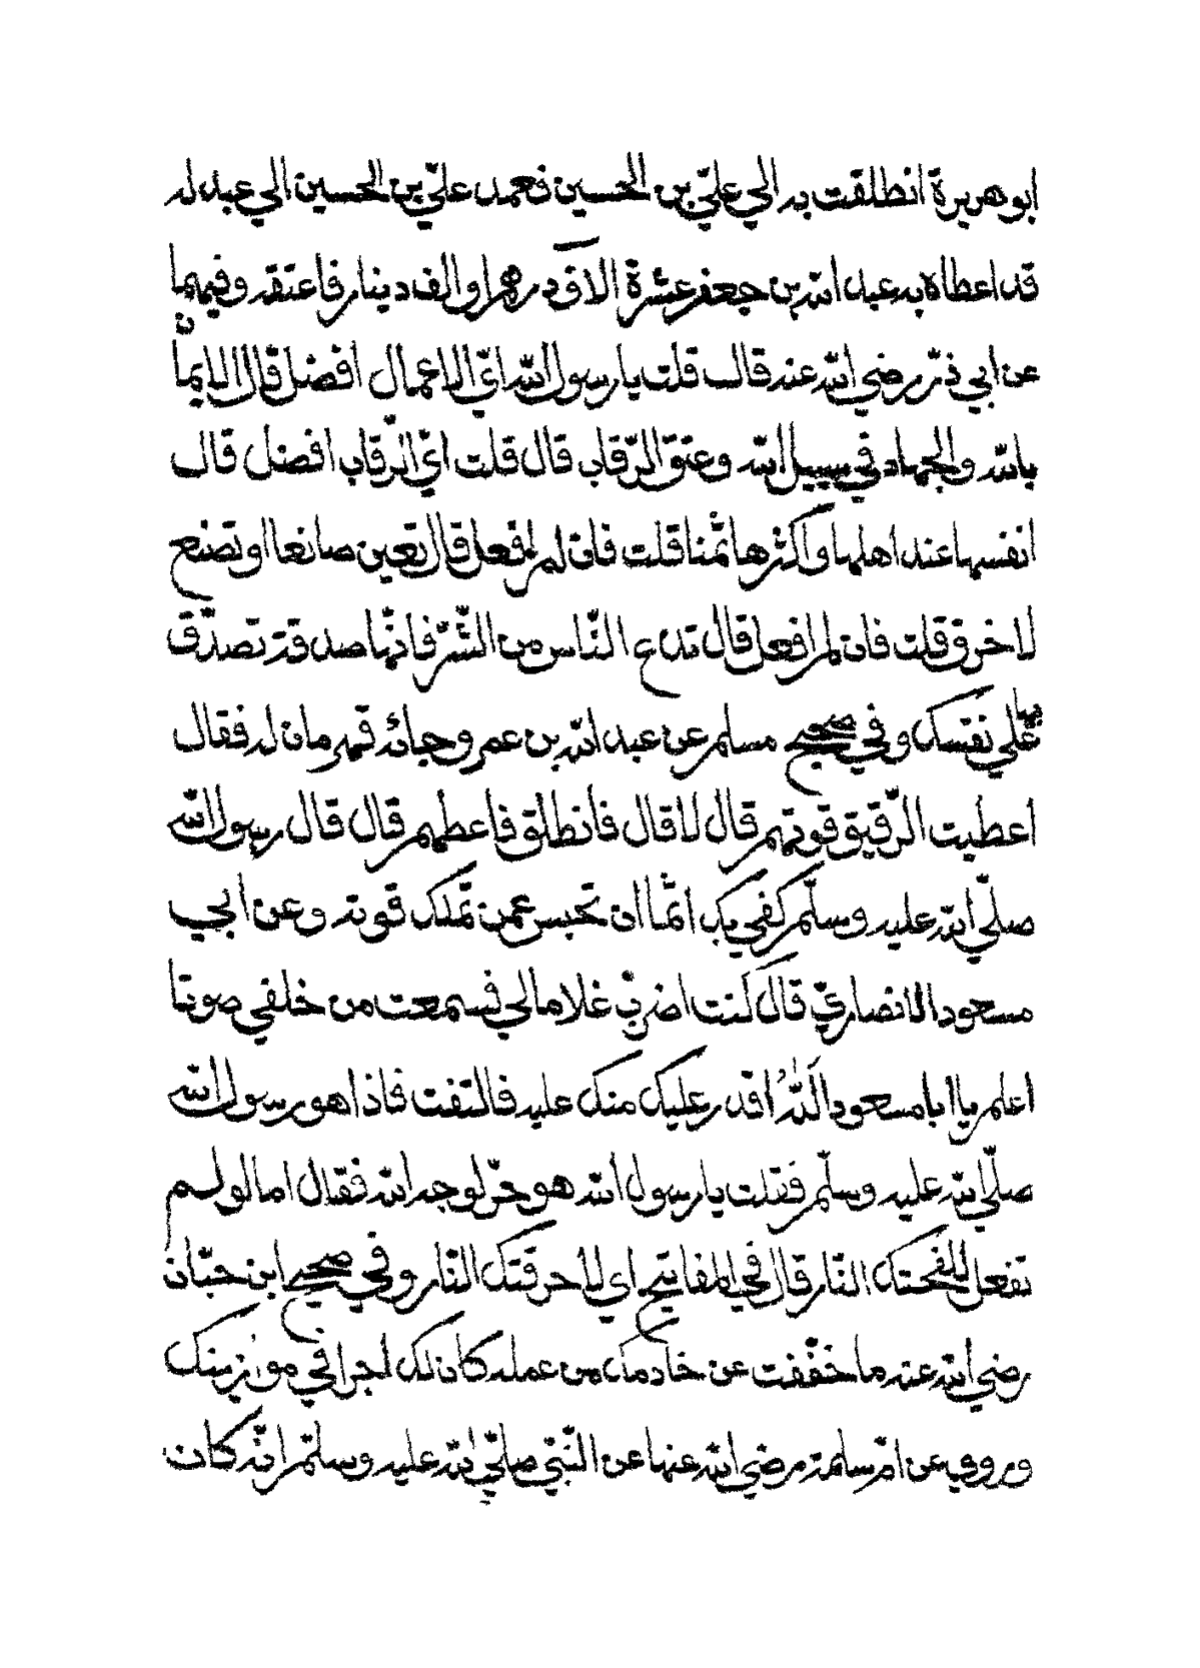 ابو هريرة انطلقت به الي عليّ بن الحسين فعمد عليّ بن الحسين الي عبد له
قد اعطاه به عبد الله بن جعفر عشرة الاف درهم او الف دينار فاعتقه وفيهما
عن ابي ذرّ رضي الله عنه قال قلت يا رسول الله ايّ الاعمال افضل قال الايمان
بالله والجهاد في سبيل الله وعتق الرّقاب قال قلت ايّ الرّقاب افضل قال
انفسها عند اهلها واكثرها ثمنا قلت فان لم افعل قال تعين صانعا او تصنع
لاخرق قلت فان لم افعل قال تدع النّاس من الشّرّ فانّها صدقة تصدّق
بها علي نفسك وفي صحيح مسلم عن عبد الله بن عمر وجائه قهرمان له فقال
اعطيت الرّقيق قوتهم قال لا قال فانطلق فاعطهم قال قال رسول الله
صلّي الله عليه وسلّم كفي بك اثما ان تحبس عمن تملك قوته وعن ابي
مسعود الانصاريّ قال كنت اضرب غلاما لي فسمعت من خلفي صوتا
اعلم يا ابا مسعود اللهُ اقدر عليك منك عليه فالتفت فاذا هو رسول الله
صلّي الله عليه وسلّم فقلت يا رسول الله هو حرّ لوجه الله فقال اما لو لم
تفعل للفحتك النّار قال في المفاتيح اي لاحرقتك النّار وفي صحيح ابن حبّان
رضي الله عنه ما خفّفت عن خادمك من عمله كان لك اجرا في موازينك
وروي عن امّ سلمة رضي الله عنها عن النّبيّ صلّي الله عليه وسلّم انّه كان